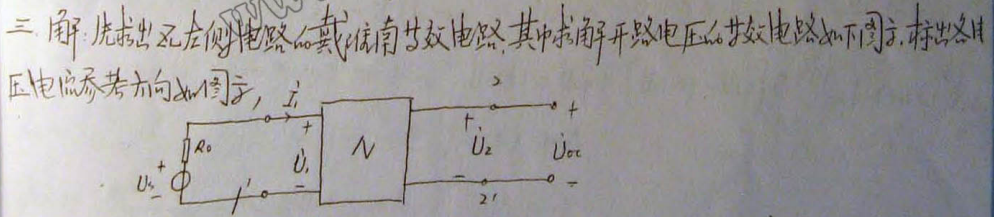 三. 解: 先求出 ZL左侧电路的戴维南等效电路. 其中求解开路电压的等效电路如下图示. 标出各电
压电流参考方向如图示,
İ₁
2
+
+
+
R₀
N
U̇₁
U̇₂
U̇oc
+
Us
-
-
-
-
1'
2'